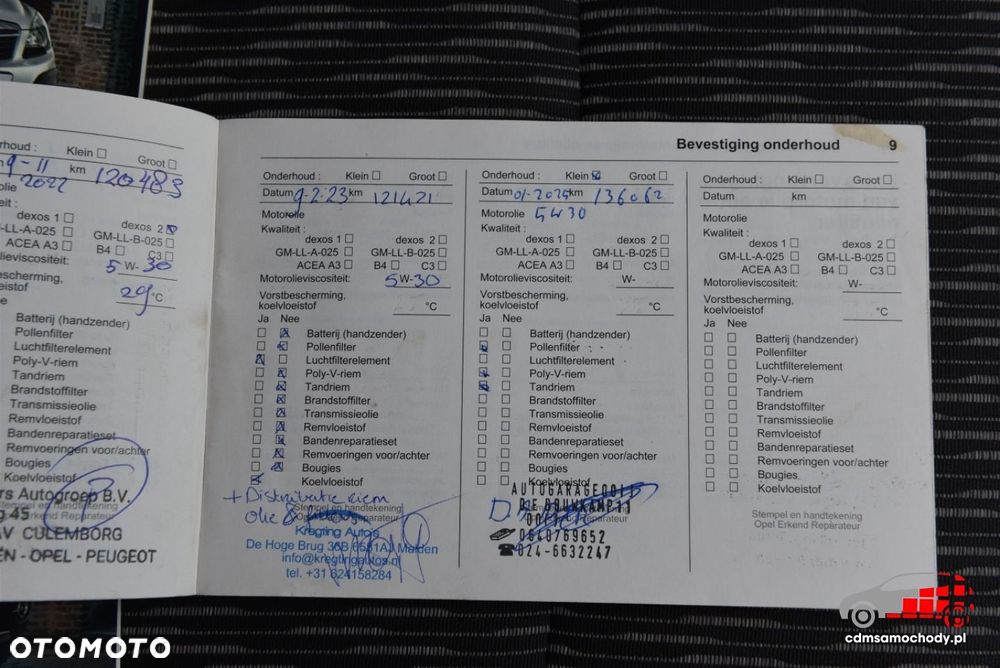 Bevestiging onderhoud 9
nderhoud : Klein Groot
9-11 2022 km 120483
dexos 1 dexos 2
-LL-A-025 GM-LL-B-025
ACEA A3 B4 C3
olieviscositeit: 5 W- 30
escherming,
eistof 29 °C
Batterij (handzender)
Pollenfilter
Luchtfilterelement
Poly-V-riem
Tandriem
Brandstoffilter
Transmissieolie
Remvloeistof
Bandenreparatieset
Remvoeringen voor/achter
Bougies
Koelvloeistof
rs Autogroep B.V.
Stempel en handtekening
Opel Erkend Reparateur
g 45
AV CULEMBORG
EN - OPEL - PEUGEOT
Onderhoud : Klein Groot
Datum 9-2-23 km 121421
Motorolie
Kwaliteit:
dexos 1 dexos 2
GM-LL-A-025 GM-LL-B-025
ACEA A3 B4 C3
Motorolieviscositeit: 5 W- 30
Vorstbescherming,
koelvloeistof °C
Ja Nee
Batterij (handzender)
Pollenfilter
Luchtfilterelement
Poly-V-riem
Tandriem
Brandstoffilter
Transmissieolie
Remvloeistof
Bandenreparatieset
Remvoeringen voor/achter
Bougies
Koelvloeistof
+ Distributie riem
Stempel en handtekening
olie &
Kregting Auto's
De Hoge Brug 36B 6581AJ Malden
info@kregtingautos.nl
tel. +31 624158284
Onderhoud : Klein Groot
Datum 01-2025 km 136062
Motorolie 5W30
Kwaliteit:
dexos 1 dexos 2
GM-LL-A-025 GM-LL-B-025
ACEA A3 B4 C3
Motorolieviscositeit: W-
Vorstbescherming,
koelvloeistof °C
Ja Nee
Batterij (handzender)
Pollenfilter
Luchtfilterelement
Poly-V-riem
Tandriem
Brandstoffilter
Transmissieolie
Remvloeistof
Bandenreparatieset
Remvoeringen voor/achter
Bougies
Koelvloeistof
0640769652
024-6632247
Onderhoud : Klein Groot
Datum km
Motorolie
Kwaliteit:
dexos 1 dexos 2
GM-LL-A-025 GM-LL-B-025
ACEA A3 B4 C3
Motorolieviscositeit: W-
Vorstbescherming,
koelvloeistof °C
Ja Nee
Batterij (handzender)
Pollenfilter
Luchtfilterelement
Poly-V-riem
Tandriem
Brandstoffilter
Transmissieolie
Remvloeistof
Bandenreparatieset
Remvoeringen voor/achter
Bougies
Koelvloeistof
Stempel en handtekening
Opel Erkend Reparateur
OTOMOTO
cdmsamochody.pl